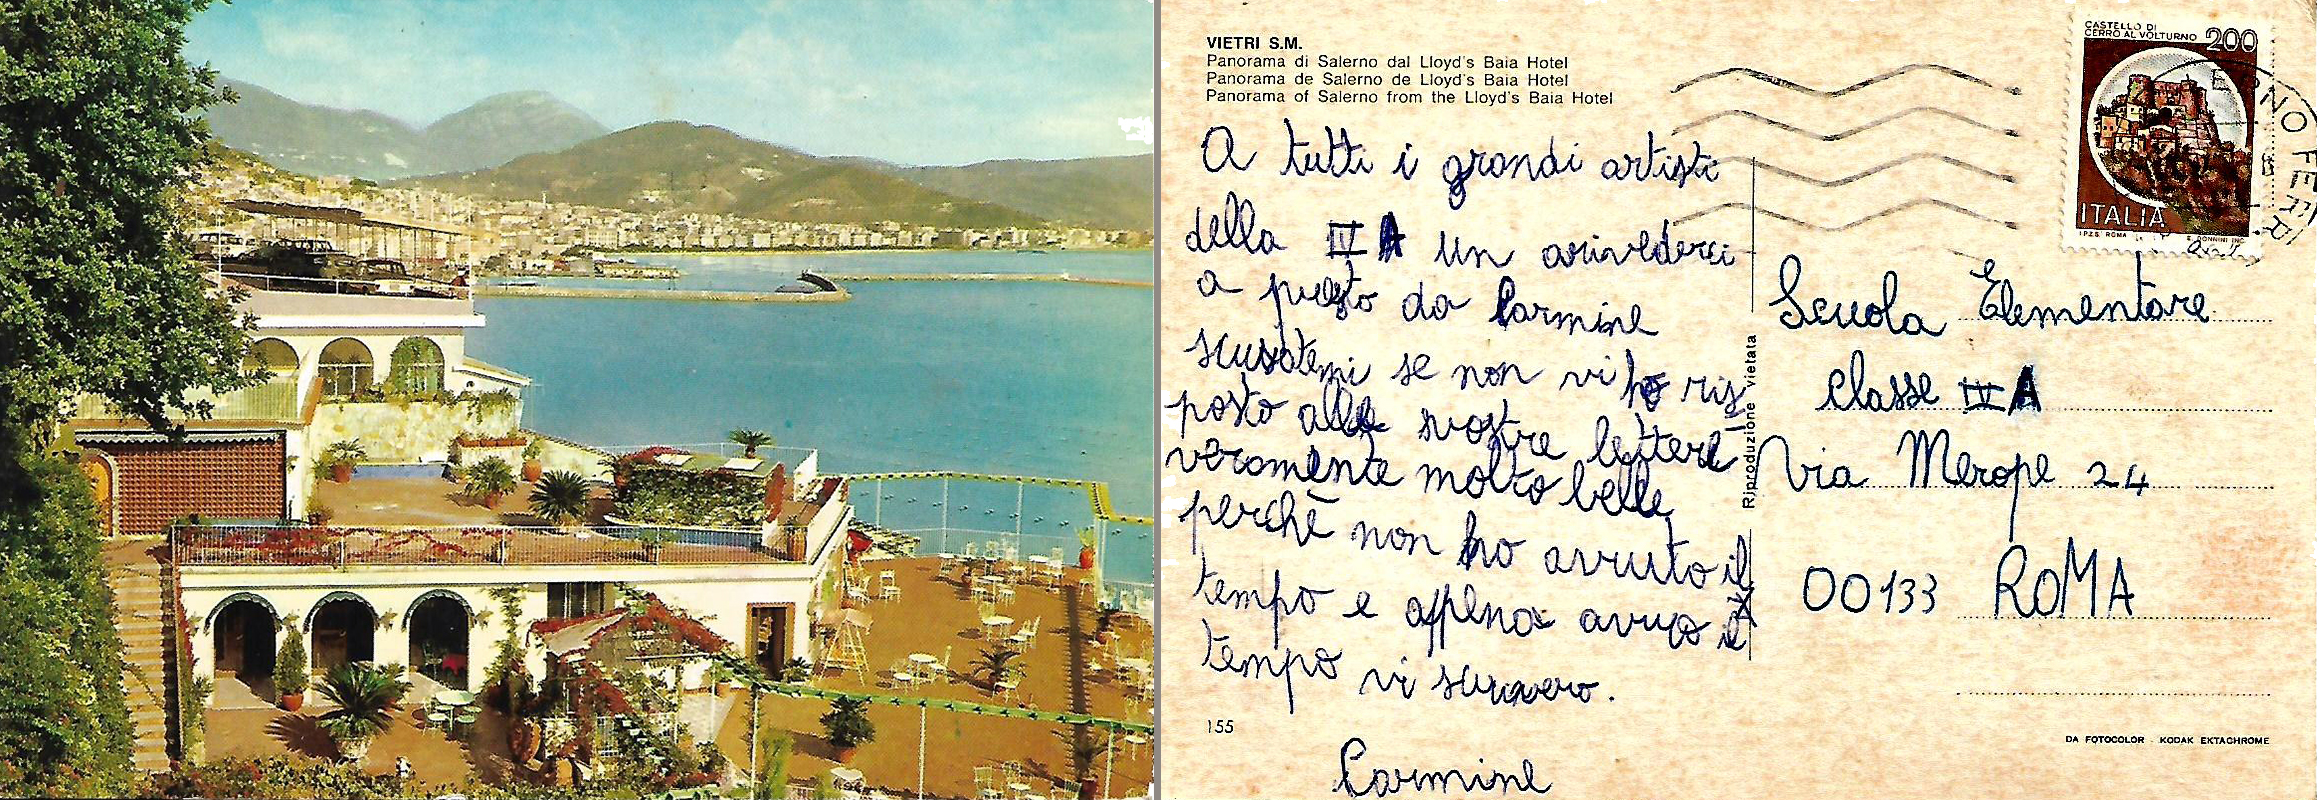 VIETRI S.M.
Panorama di Salerno dal Lloyd's Baia Hotel
Panorama de Salerno de Lloyd's Baia Hotel
Panorama of Salerno from the Lloyd's Baia Hotel
A tutti i grandi artisti
della IV A un arivederci
a presto da Carmine
scusatemi se non vi ho ris
posto alle vostre lettere
veramente molto belle
perchè non ho avuto il
tempo e appena avrò il
tempo vi scriverò.
Carmine
155
Riproduzione vietata
CASTELLO DI
CERRO AL VOLTURNO 200
ITALIA
I.P.Z.S. ROMA
E. DONNINI INC.
Scuola Elementare
classe IV A
Via Merope 24
00133 ROMA
DA FOTOCOLOR - KODAK EKTACHROME